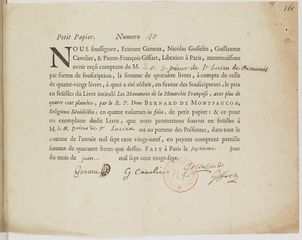 Petit Papier. Numero 40
NOUS soussignez, Etienne Ganeau, Nicolas Gosselin, Guillaume
Cavelier, & Pierre-François Giffart, Libraires à Paris, reconnoissons
avoir reçû comptant de M. Le R. P. prieur de St Lucien de Beauvais
par forme de souscription, la somme de quarante livres, à compte de celle
de quatre-vingt livres, à quoi a été réduit, en faveur des Souscripteurs, le prix
en feuilles du Livre intitulé Les Monumens de la Monarchie Françoise, avec plus de
quatre cent planches, par le R. P. Dom BERNARD DE MONTFAUCON,
Religieux Benédictin: en quatre volumes in folio, de petit papier: & ce pour
un exemplaire dudit Livre, que nous promettons fournir en feuilles à
M. Le R. prieur de St Lucien ou au porteur des Présentes, dans tout le
courant de l'année mil sept cent vingt-neuf, en payant comptant pareille
somme de quarante livres que dessus. FAIT à Paris le
jour du mois de juin mil sept cent vingt-sept.
Ganeau G. Cavelier Gosselin
Giffart